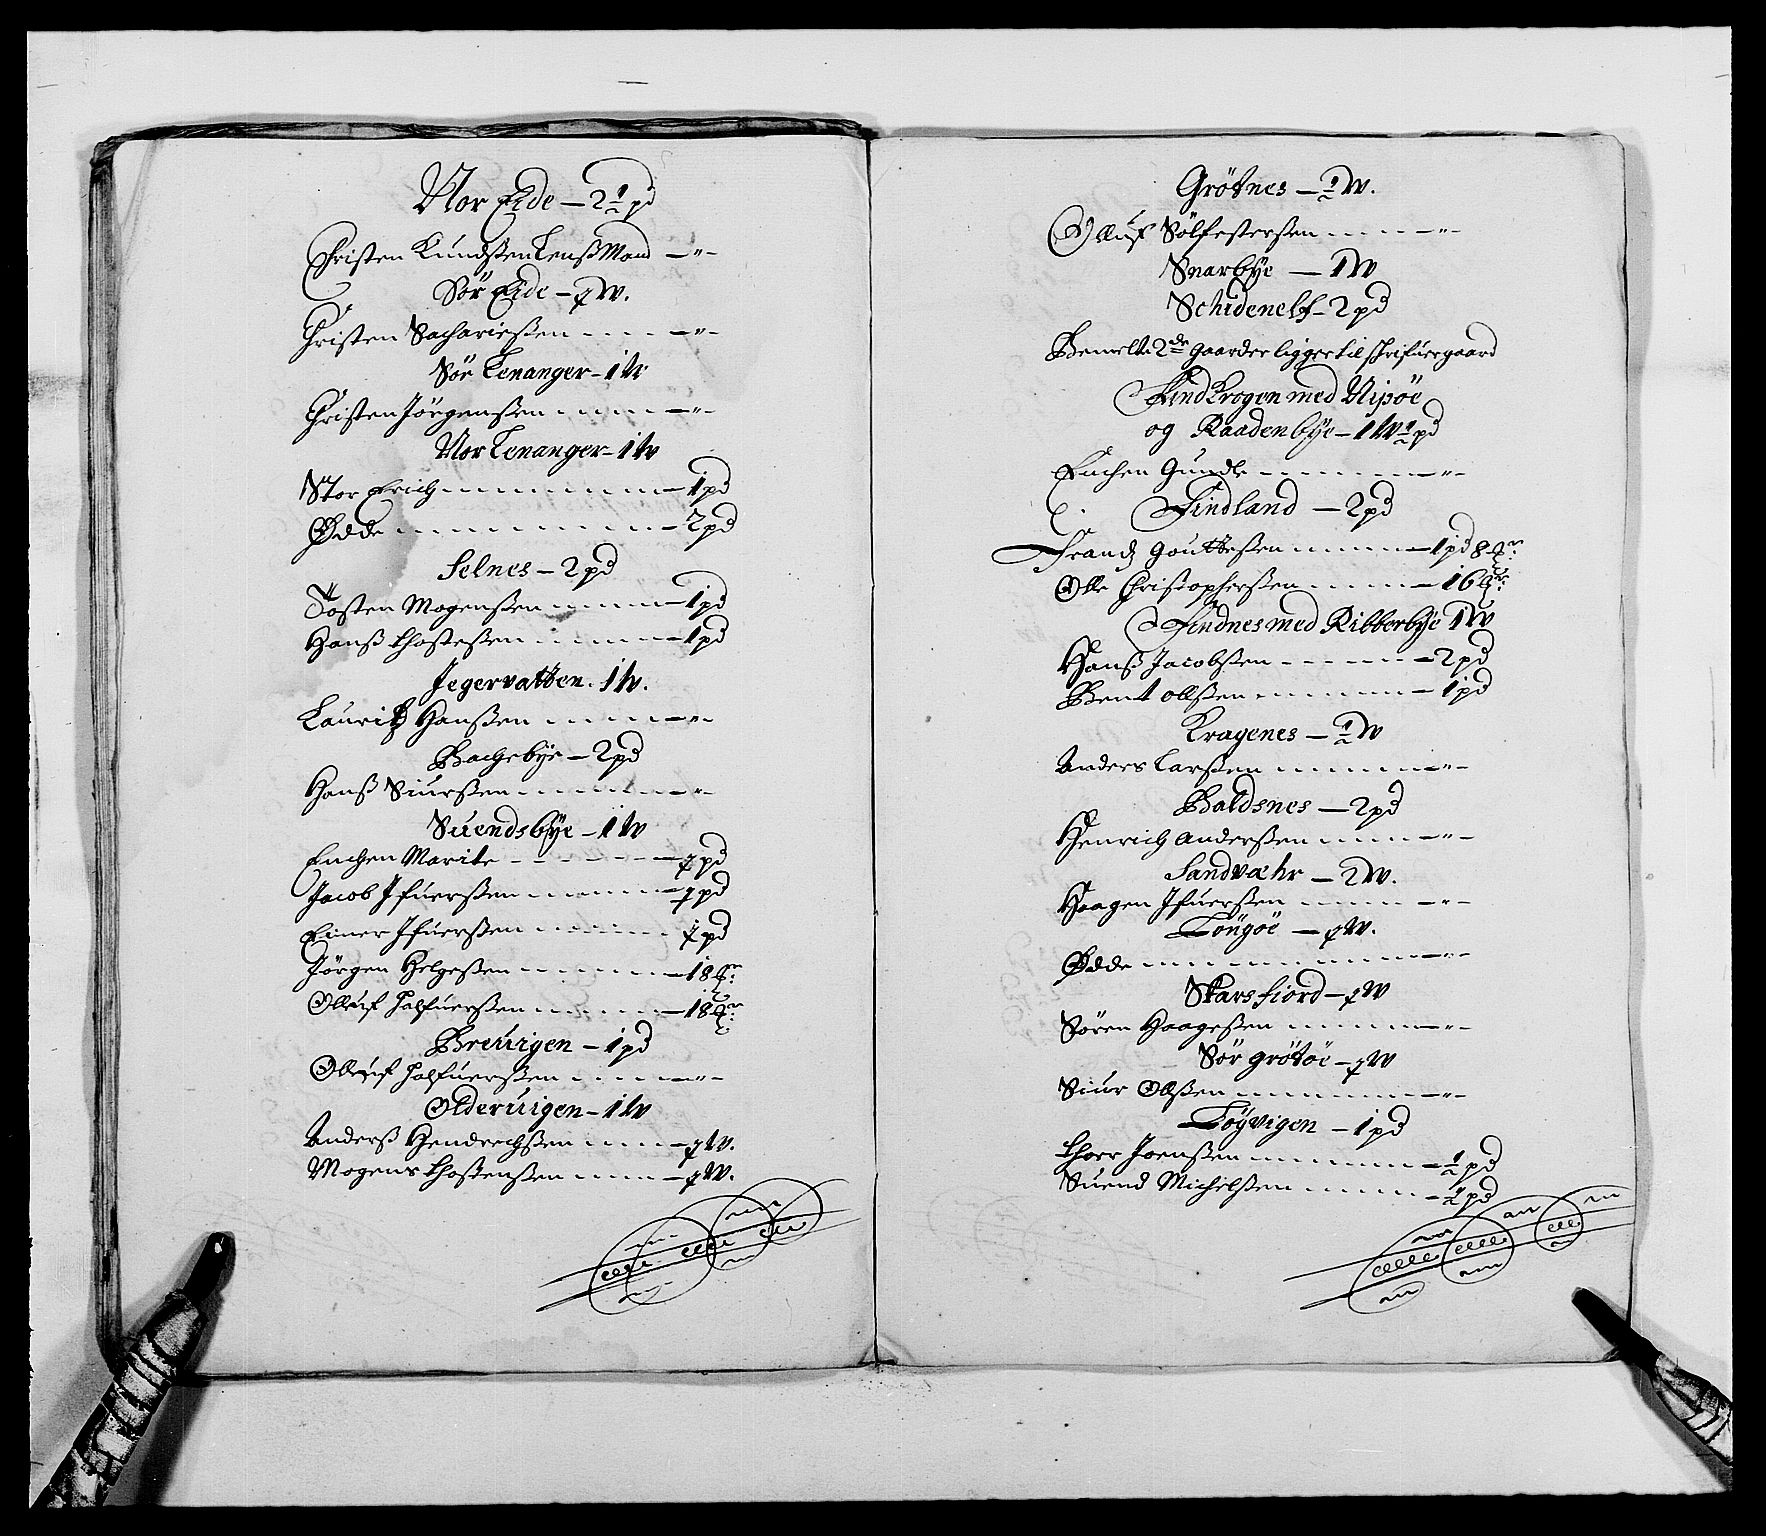 Nor Eide – 2 1/2 pd
Christen Knudßen Lenß Mand – " –
Sör Eide – 1/2 W.
Christen Sachariesßen – " –
Sör Lenanger – 1 W
Christen Jörgenßen – " –
Nor Lenanger – 1 W
Stor Erich – 1 pd
Ødde – 2 pd
Selnes – 2 pd
Tosten Mogenßen – 1 pd
Hanß Thosteßen – 1 pd
Jegervatten. 1 W.
Lauritz Hanßen – " –
Bachebÿe – 2 pd
Hanß Siurßen – " –
Suendsbÿe – 1 W
Enchen Marite – 1/2 pd
Jacob Ifuerßen – 1/2 pd
Einer Ifuerßen – 1/2 pd
Jörgen Helgeßen – 18
Olluf Halfuerßen – 18
Breuigen – 1 pd
Olluf Halfuerßen – " –
Olderuigen – 1 W
Anderß Hendrechßen – 1/2 W.
Mogens Thostenßen – 1/2 W.
Grötnes – 1/2 W.
Olluf Sölfesterßen – " –
Snarbÿe – 1 W
Schidenelf – 2 pd
Bemelte 2de gaarder ligger til schrifuergaard
Findkrogen med Nipöe
og Raadenbÿe – 1 W 1/2 pd
Enchen Gundle – " –
Findland – 2 pd
Frandz Gouttesßen – 1 pd 8
Olle Christopherßen – 16
Findnes med Ribberbÿe 1 W
Hanß Jacobßen – 2 pd
Bent Olßen – 1 pd
Kragenes – 1/2 W
Anders Larßen – " –
Baldsnes – 2 pd
Henrich Anderßen – " –
Sandvæhr – 2 W.
Haagen Ifuerßen – " –
Töngöe – 1/2 W.
Ødde – " –
Skarsfiord – 1/2 W
Sören Haageßen – " –
Sör grötöe – 1/2 W
Siur Olßen – " –
Töyvigen – 1 pd
Thorr Joenßen – 1/2 pd
Suend Michelßen – 1/2 pd